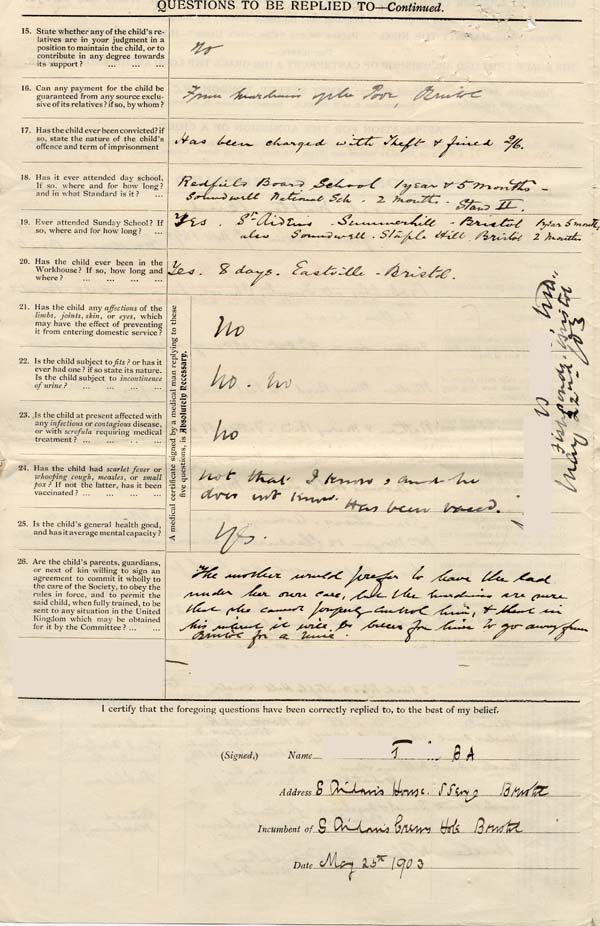 QUESTIONS TO BE REPLIED TO—Continued.
15. State whether any of the child's re-
latives are in your judgment in a
position to maintain the child, or to
contribute in any degree towards
its support? ... ... ...
No
16. Can any payment for the child be
guaranteed from any source exclu-
sive of its relatives? if so, by whom?
From Guardians of the Poor, Bristol
17. Has the child ever been convicted? if
so, state the nature of the child's
offence and term of imprisonment
Has been charged with Theft & fined 2/6.
18. Has it ever attended day school,
If so, where and for how long?
and in what Standard is it? ...
Redfield Board School 1 year & 5 months -
Soundwell National Sch. 2 months - Stand II.
19. Ever attended Sunday School? If
so, where and for how long? ...
Yes. St Aidens - Summerhill - Bristol 1 year 5 months,
also Soundwell. Staple Hill. Bristol 2 months
20. Has the child ever been in the
Workhouse? If so, how long and
where? ... ... ... ...
Yes. 8 days. Eastville - Bristol.
A medical certificate signed by a medical man replying to these
five questions, is Absolutely Necessary.
21. Has the child any affections of the
limbs, joints, skin, or eyes, which
may have the effect of preventing
it from entering domestic service?
No
22. Is the child subject to fits? or has it
ever had one? if so state its nature.
Is the child subject to incontinence
of urine? ... ... ... ...
No. No
23. Is the child at present affected with
any infectious or contagious disease,
or with scrofula requiring medical
treatment? ... ... ... ...
No
24. Has the child had scarlet fever or
whooping cough, measles, or small
pox? If not the latter, has it been
vaccinated? ... ... ... ...
Not that I know, and he
does not know. Has been vaccd.
25. Is the child's general health good,
and has it average mental capacity?
Yes.
Fishponds. Bristol
May 22nd /03
26. Are the child's parents, guardians,
or next of kin willing to sign an
agreement to commit it wholly to
the care of the Society, to obey the
rules in force, and to permit the
said child, when fully trained, to be
sent to any situation in the United
Kingdom which may be obtained
for it by the Committee? ... ...
The mother would prefer to have the lad
under her own care, but the Guardians are sure
that she cannot properly control him, & that in
his interest it will be better for him to go away from
Bristol for a time.
I certify that the foregoing questions have been correctly replied to, to the best of my belief.
(Signed,) Name T BA
Address S Aidan's House. Bristol
Incumbent of S Aidan's Crews Hole Bristol
Date May 25th 1903